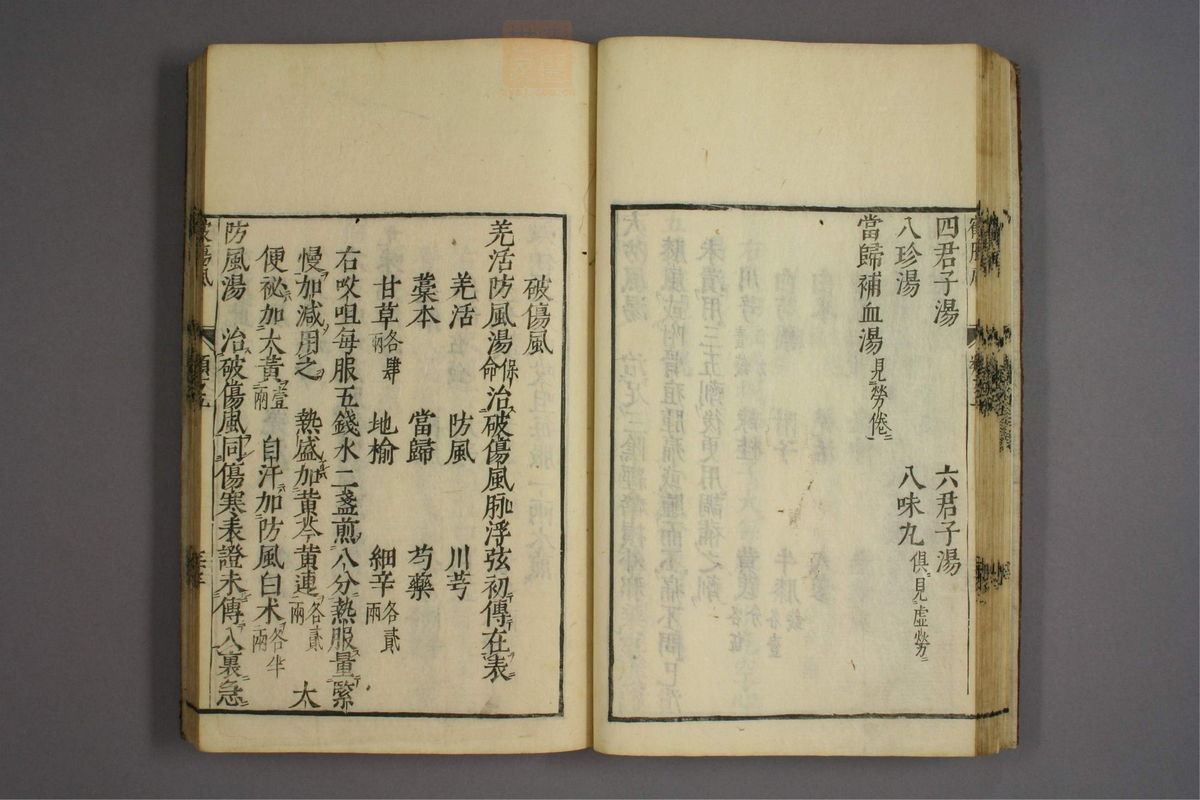 四君子湯 六君子湯
八珍湯 八味丸俱見虛勞
當歸補血湯見勞倦
破傷風
羌活防風湯保命治破傷風脉浮弦初傳在表
羌活 防風 川芎
藁本 當歸 芍藥
甘草各肆兩 地榆 細辛各貳兩
右㕮咀每服五錢水二盞煎八分熱服量緊
慢加減用之 熱盛加黃芩黃連各貳兩 大
便祕加大黃壹兩 自汗加防風白朮各半兩
防風湯 治破傷風同傷寒表證未傳入裏急
破傷風